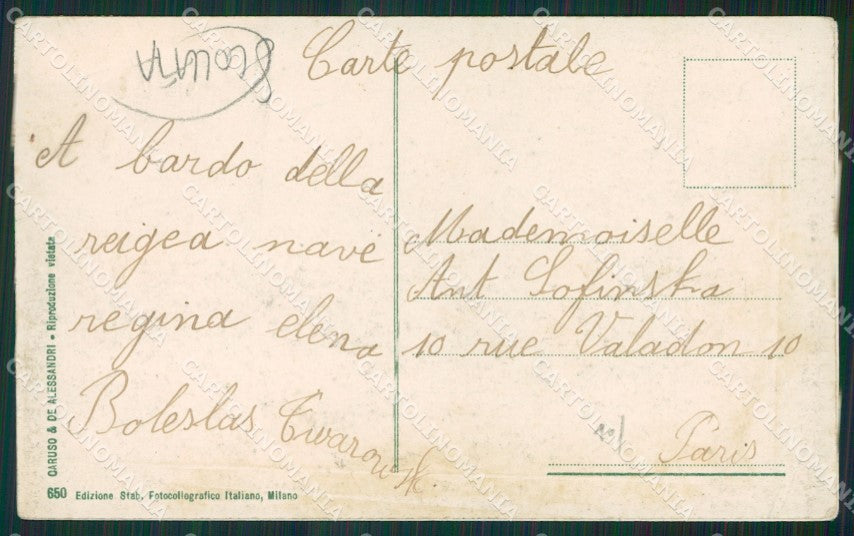 Carte postale
A bardo della
reigea nave
regina elena
Boleslas Twarowsk.
Mademoiselle
Ant Sofinska
10 rue Valadon 10
Paris
CARUSO & DE ALESSANDRI - Riproduzione vietata
650 Edizione Stab. Fotocollografico Italiano, Milano
CARTOLINOMANIA